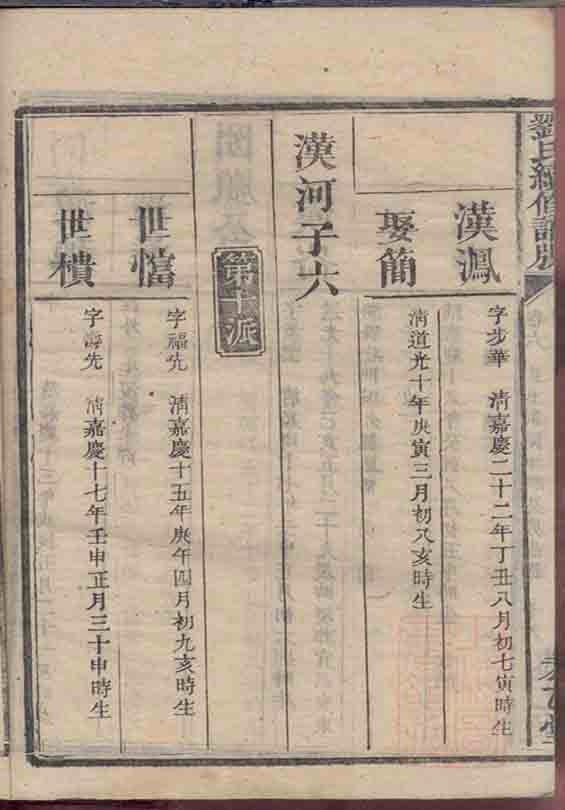 劉氏續修譜牒
漢渢
字步華 清嘉慶二十二年丁丑八月初七寅時生
娶簡
清道光十年庚寅三月初八亥時生
漢河子六
第十派
世愭
字福先 清嘉慶十五年庚午四月初九亥時生
世㯷
字壽先 清嘉慶十七年壬申正月三十申時生